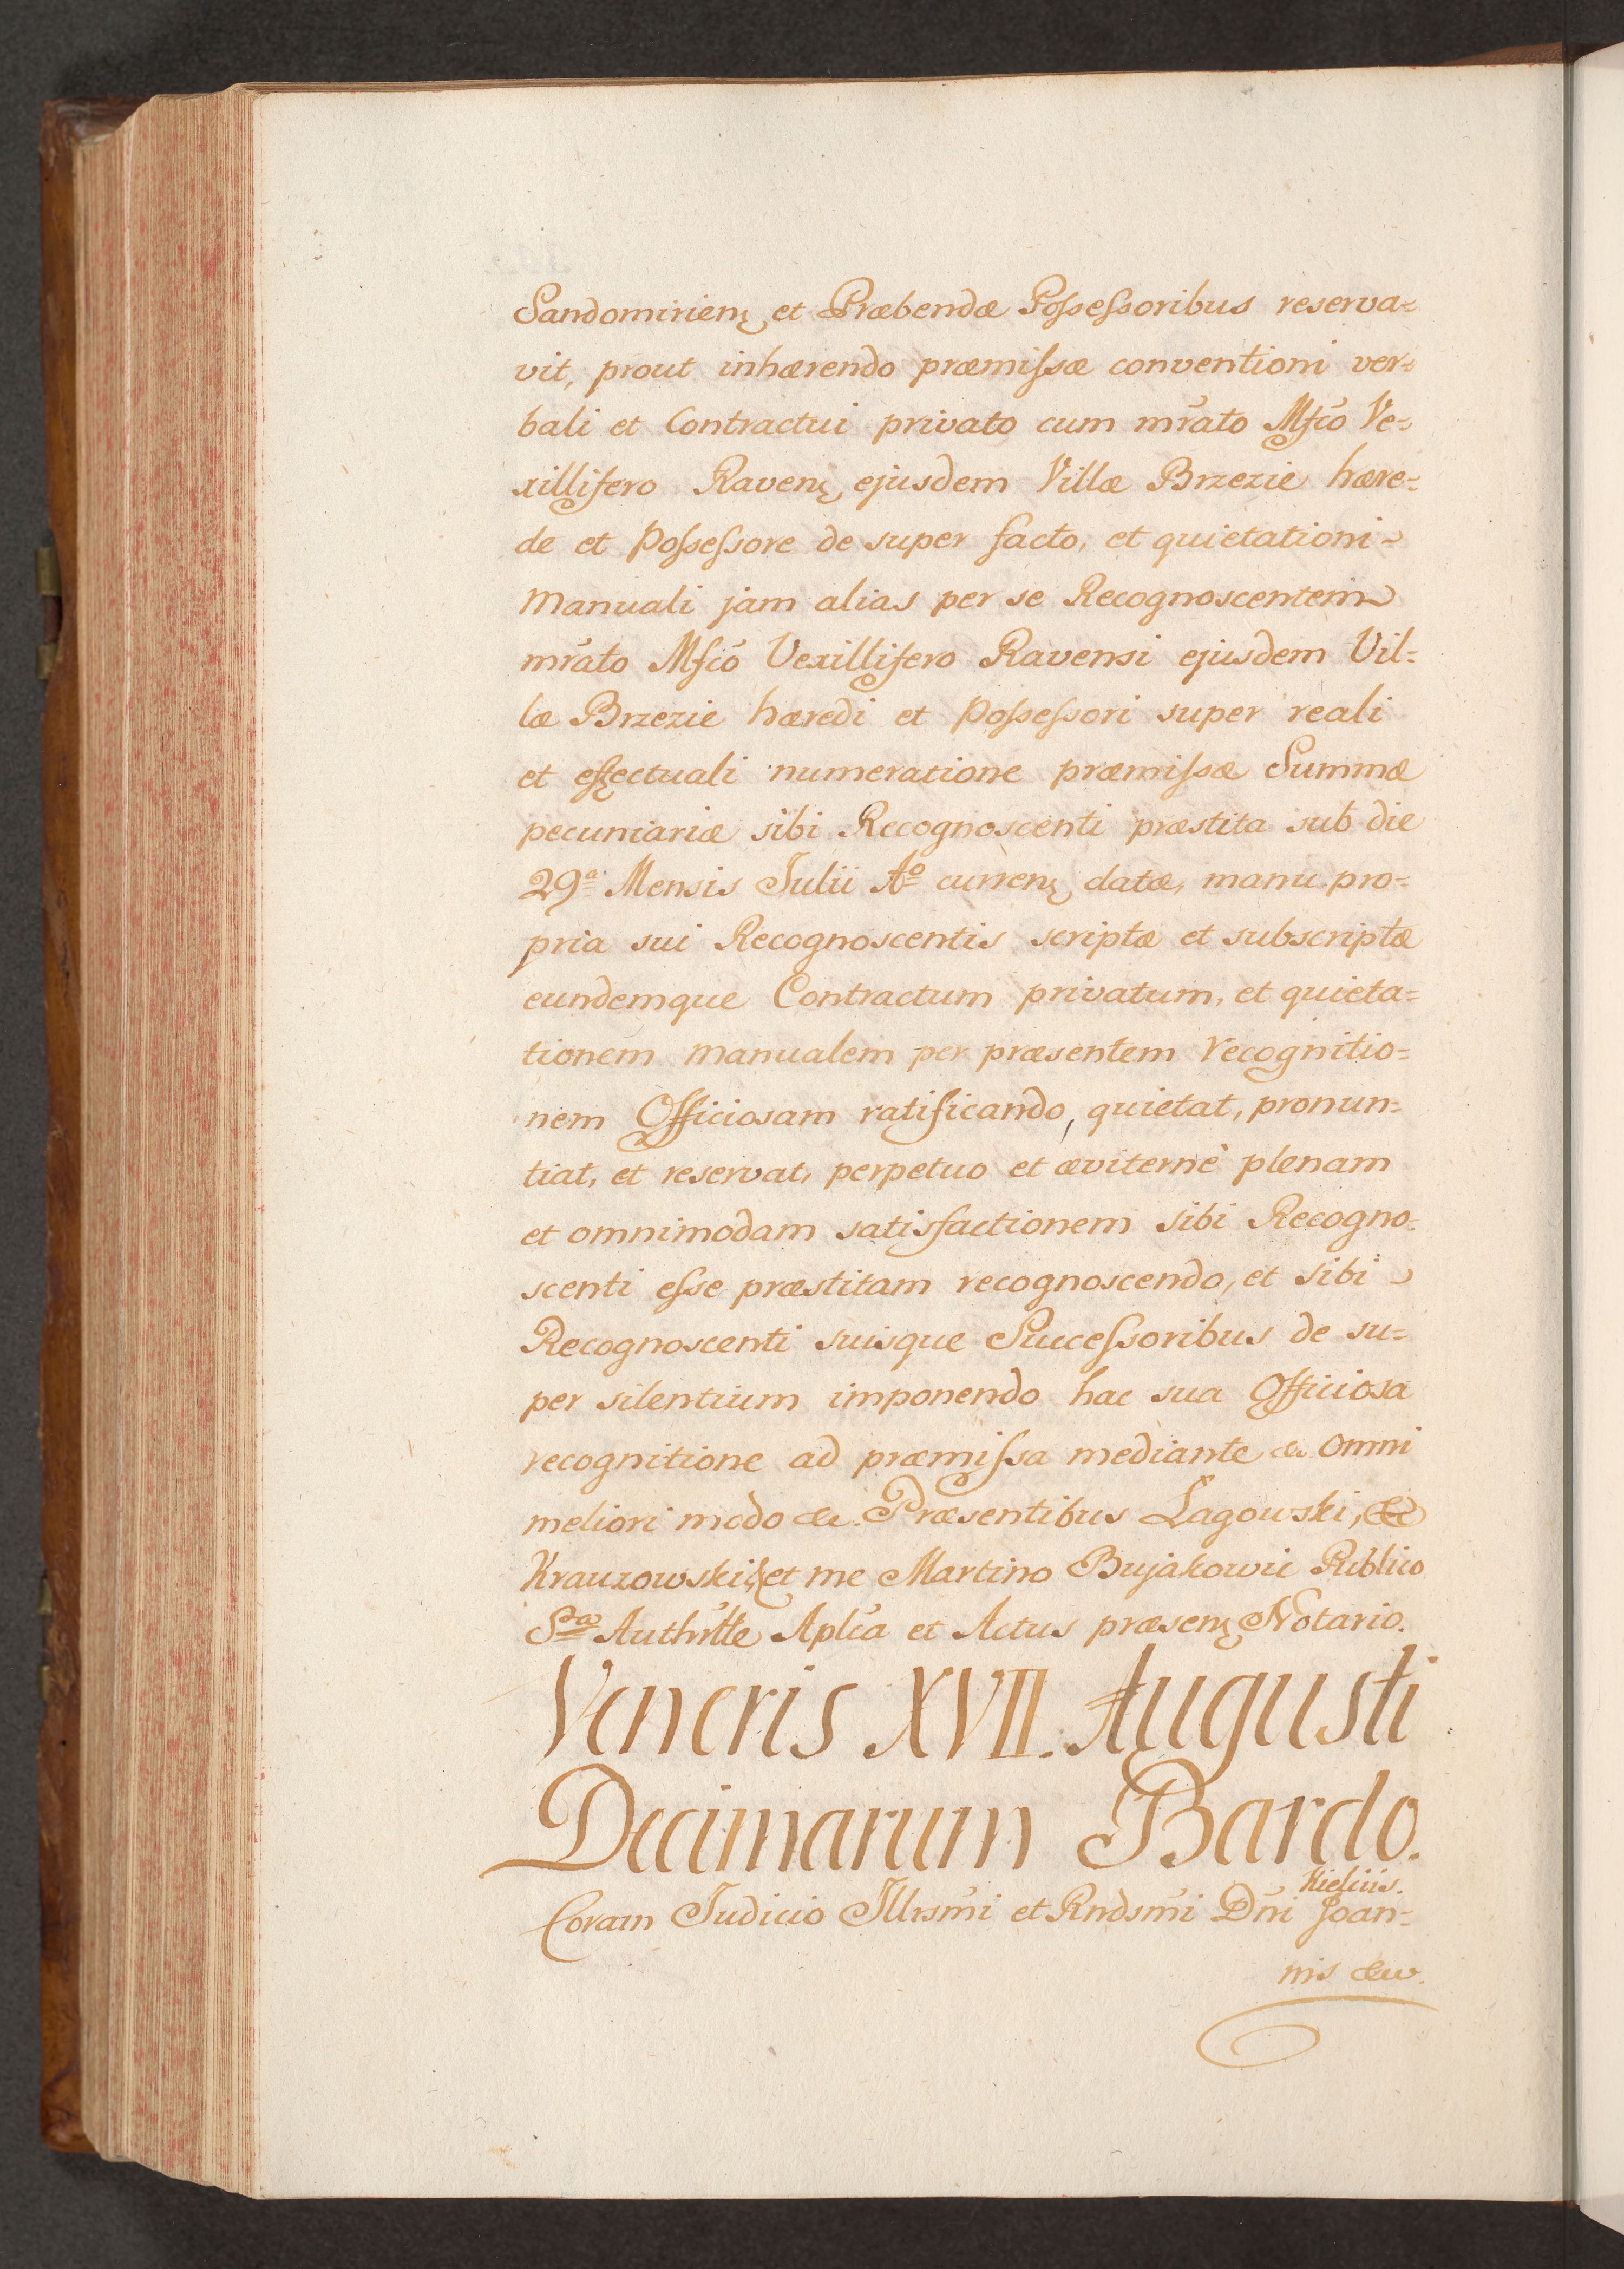 Sandomirienę et Præbendæ Poſseſsoribus reserva=
vit, prout inhærendo præmiſsæ conventioni ver=
bali et Contractui privato cum mrãto Mfcõ Ve=
xillifero Ravenę ejusdem Villæ Brzezie hære=
de et Poſseſsore de super facto, et quietationi=
Manuali jam alias per se Recognoscentem
mrãto Mfcõ Vexillifero Ravensi ejusdem Vil=
læ Brzezie hæredi et Poſseſsori super reali
et effectuali numeratione præmiſsæ Summæ
pecuniariæ sibi Recognoscenti præstita sub die
29ª Mensis Julii Aº currenę datæ, manu pro=
pria sui Recognoscentis scriptæ et subscriptæ
eundemque Contractum privatum, et quieta=
tionem manualem per præsentem recognitio=
nem Officiosam ratificando, quietat, pronun=
tiat, et reservat, perpetuo et æviternè plenam
et omnimodam satisfactionem sibi Recogno=
scenti eſse præstitam recognoscendo, et sibi
Recognoscenti suisque Succeſsoribus de su=
per silentium imponendo hac sua Officiosa
recognitione ad præmiſsa mediante &c. omni
meliori modo &c. Præsentibus Lagowski, &
Krauzowski et me Martino Bujakowic Publico
Sra Authrtte Aplĩca et Actus præsenę Notario.
Veneris XVII. Augusti
Decimarum Bardo.
Kielciis.
Coram Judicio Illrsmĩ et Rndsmĩ Dnĩ Joan=
nis &c.